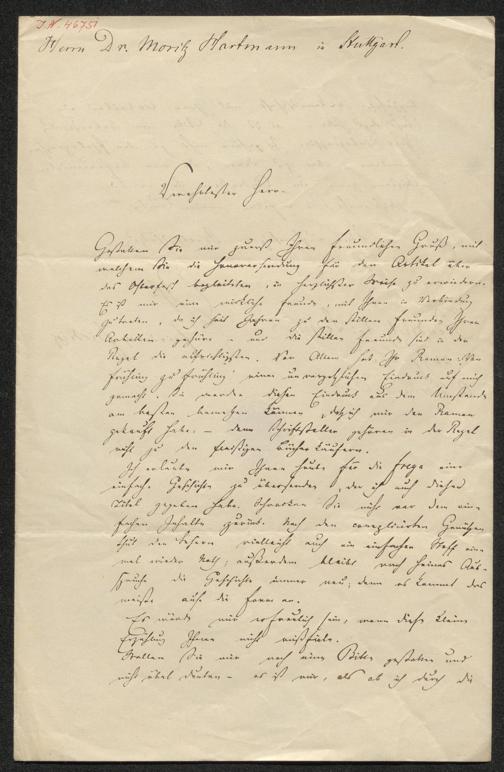 I.N. 46751
Herrn Dr. Moritz Hartmann in Stuttgart.
Verehrtester Herr.
Gestatten Sie mir zuerst Ihren freundlichen Gruß, mit
welchem Sie die Honorarsendung für den Artikel über
das Osterfest begleiteten, in herzlichster Weise zu erwiedern.
Es ist mir eine wirkliche Freude, mit Ihnen in Verbindung
zu treten, da ich seit Jahren zu den stillen Freunden Ihrer
Arbeiten gehöre – und die stillen Freunde sind in der
Regel die aufrichtigsten. Vor Allem hat Ihr Roman "Von
Frühling zu Frühling" einen unvergeßlichen Eindruck auf mich
gemacht. Sie werden diesen Eindruck aus dem Umstande
am besten bemessen können, daß ich mir den Roman
gekauft habe, – denn Schriftsteller gehören in der Regel
nicht zu den fleißigen Bücherkäufern.
Ich erlaube mir Ihnen heute für die Freya eine
einfache Geschichte zu übersenden, der ich auch diesen
Titel gegeben habe. Schrecken Sie nicht vor dem ein-
fachen Inhalte zurück. Nach den complicirten Genüssen
thut den Lesern vielleicht auch ein einfacher Stoff ein-
mal wieder Noth; außerdem bleibt nach Heines Aus-
spruche die Geschichte immer neu; denn es kommt das
meiste auf die Form an.
Es würde mir erfreulich sein, wenn diese kleine
Erzählung Ihnen nicht mißfiele.
Wollen Sie mir noch eine Bitte gestatten und
nicht übel deuten – es ist mir, als ob ich durch die